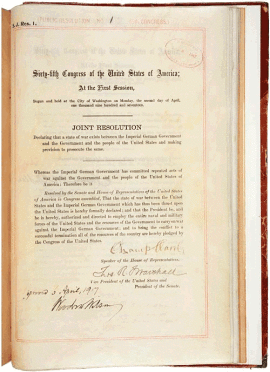 S. J. Res. 1.
1
Sixty-fifth Congress of the United States of America;
At the First Session,
Begun and held at the City of Washington on Monday, the second day of April,
one thousand nine hundred and seventeen.
JOINT RESOLUTION
Declaring that a state of war exists between the Imperial German Government
and the Government and the people of the United States and making
provision to prosecute the same.
Whereas the Imperial German Government has committed repeated acts of
war against the Government and the people of the United States of
America: Therefore be it
Resolved by the Senate and House of Representatives of the United States
of America in Congress assembled, That the state of war between the
United States and the Imperial German Government which has thus been thrust upon
the United States is hereby formally declared; and that the President be, and
he is hereby, authorized and directed to employ the entire naval and military
forces of the United States and the resources of the Government to carry on war
against the Imperial German Government; and to bring the conflict to a
successful termination all of the resources of the country are hereby pledged by
the Congress of the United States.
Champ Clark
Speaker of the House of Representatives.
Thos. R. Marshall
Vice President of the United States and
President of the Senate.
Approved 6 April, 1917
Woodrow Wilson